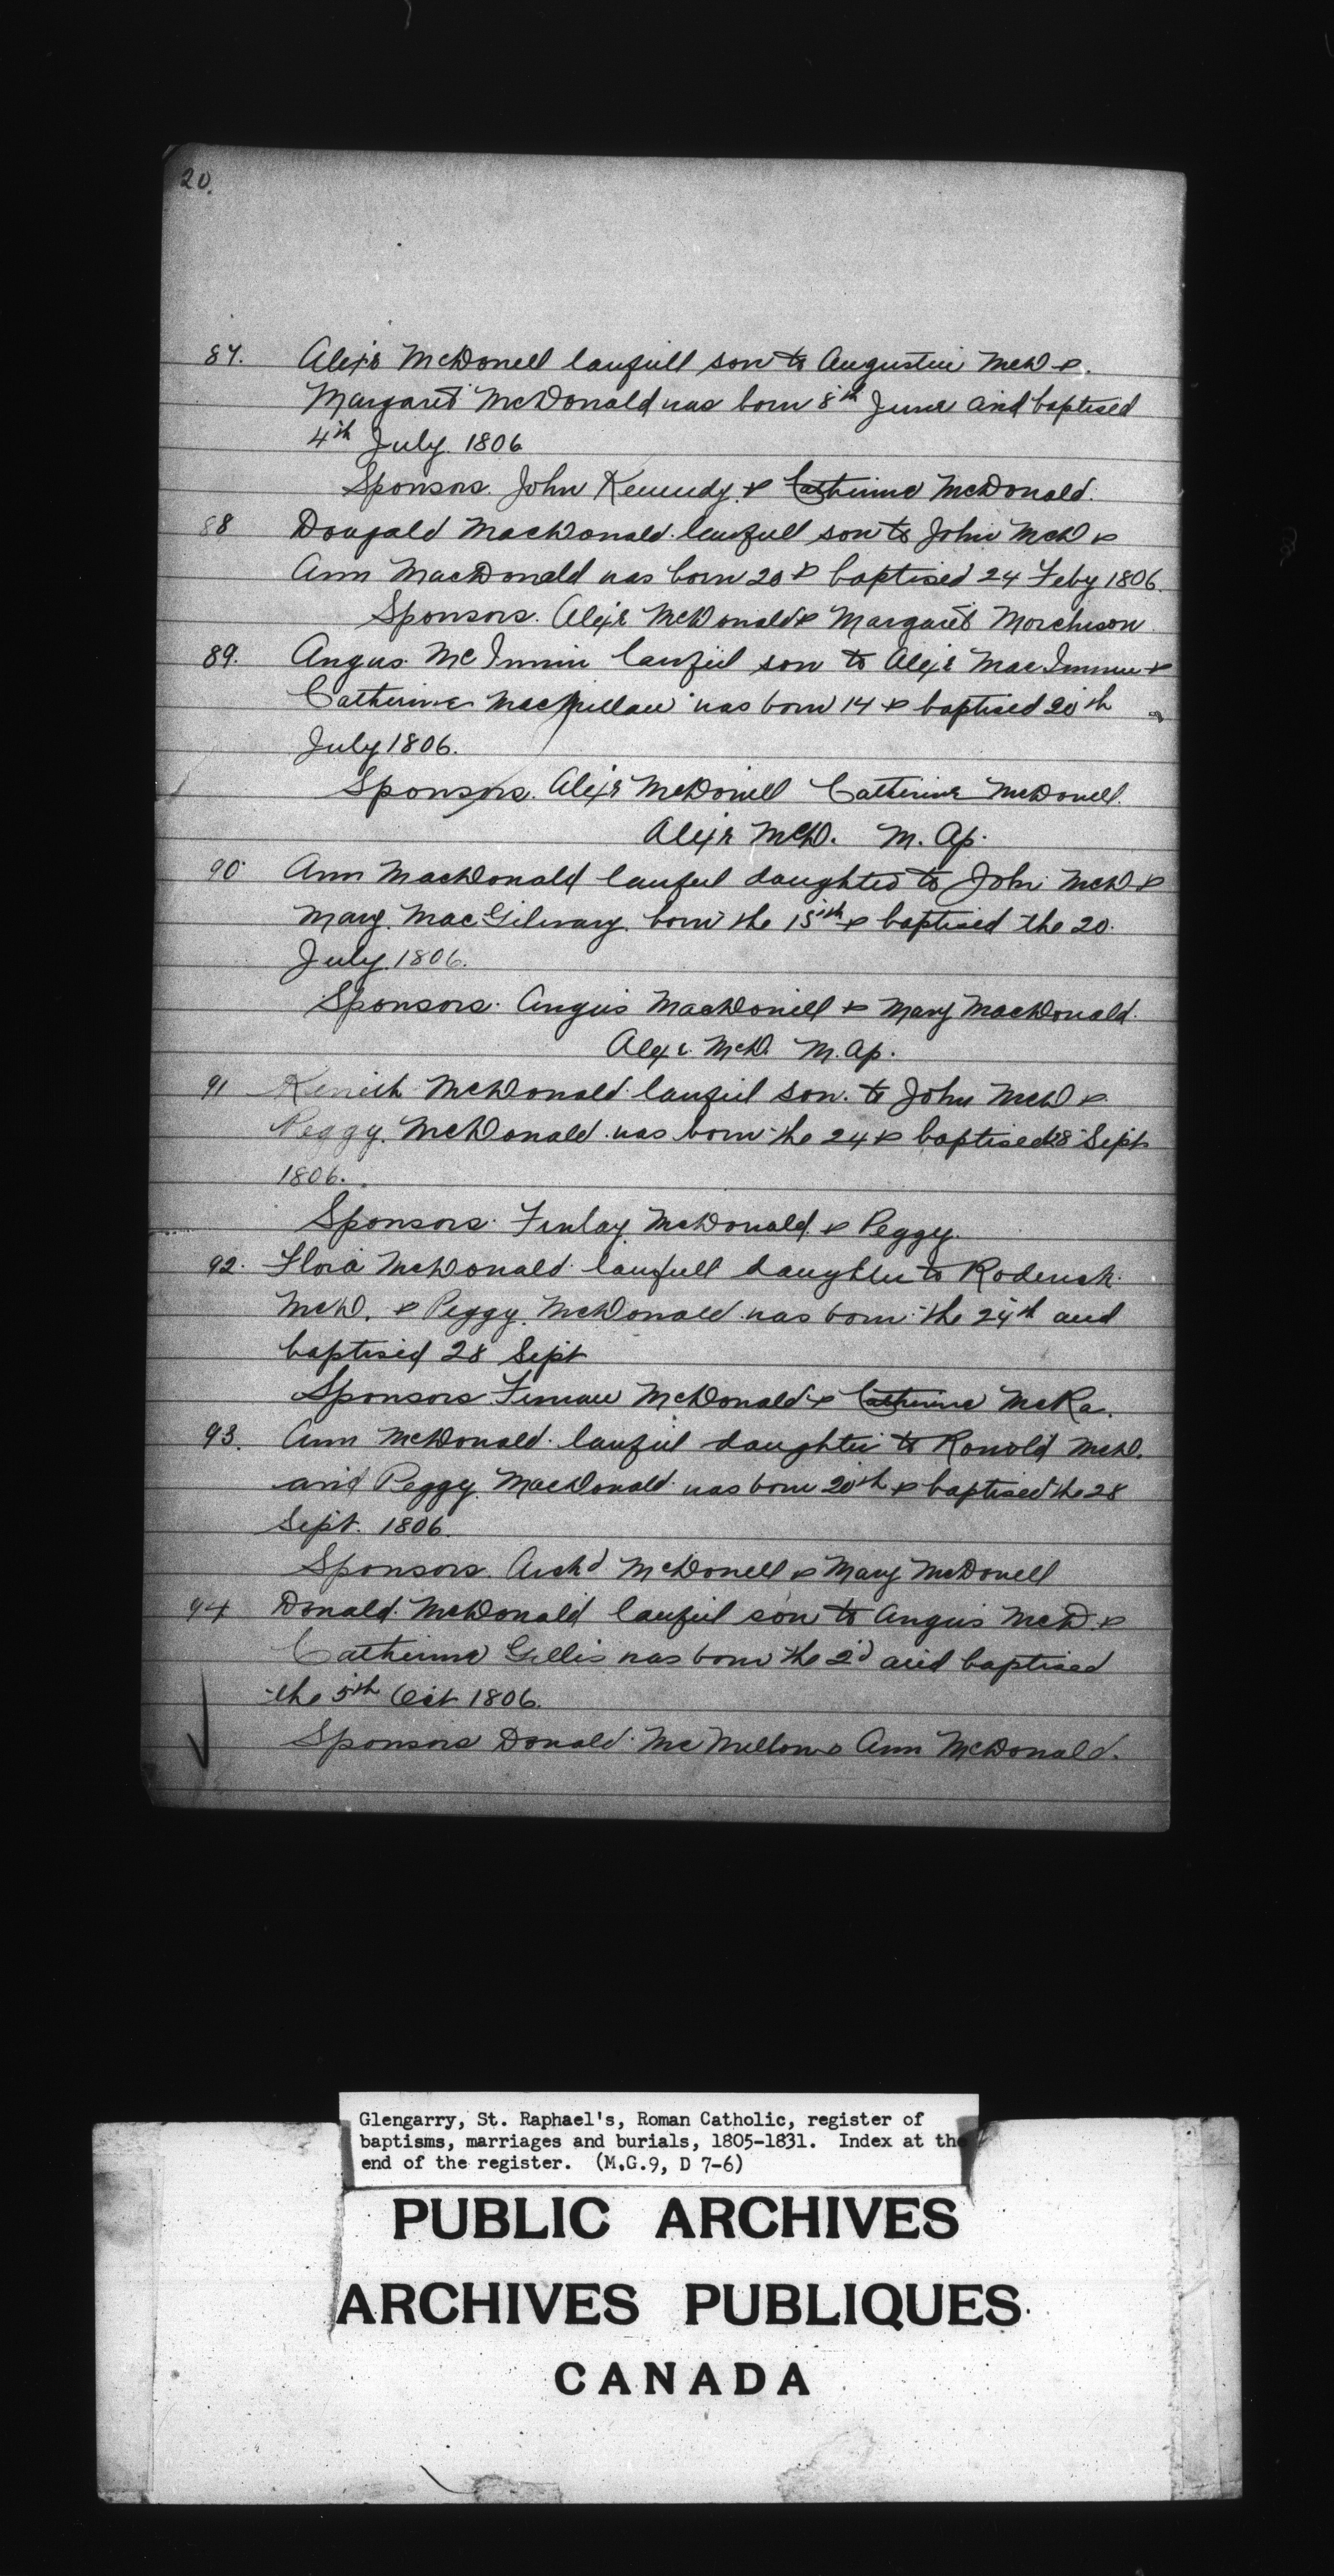 20.
87. Alexr McDonell lawfull son to Augustin McD &
Margaret McDonald was born 8th June and baptised
4th July 1806
Sponsors. John Kennedy & Catherine McDonald.
88 Dougald MacDonald lawfull son to John McD &
Ann MacDonald was born 20 & baptised 24 Feby 1806.
Sponsors. Alexr McDonald & Margaret Morchison
89. Angus McInnin lawful son to Alexr MacInnin &
Catherine MacMillan was born 14 & baptised 20th
July 1806.
Sponsors. Alexr McDonell Catherine McDonell.
Alexr McD. M. Ap.
90 Ann MacDonald lawful daughter to John McD &
Mary MacGilvary born the 15th & baptised the 20.
July 1806.
Sponsors. Angus MacDonell & Mary MacDonald.
Alexr. McD. M. Ap.
91 Kenith McDonald lawful son to John McD &
Peggy McDonald was born the 24 & baptised 28 Sept
1806.
Sponsors. Finlay McDonald. & Peggy.
92. Flora McDonald lawfull daughter to Roderick
McD. & Peggy McDonald was born the 24th and
baptised 28 Sept
Sponsors McDonald & Catherine McRa.
93. Ann McDonald lawful daughter to Ronold McD.
and Peggy MacDonald was born 20th & baptised the 28
Sept. 1806.
Sponsors. Archd McDonell & Mary McDonell
94 Donald McDonald lawful son to Angus McD &
Catherine Gillis was born the 2d and baptised
the 5th Oct 1806.
Sponsors Donald McMillon & Ann McDonald.
Glengarry, St. Raphael's, Roman Catholic, register of
baptisms, marriages and burials, 1805-1831. Index at the
end of the register. (M.G.9, D 7-6)
PUBLIC ARCHIVES
ARCHIVES PUBLIQUES
CANADA